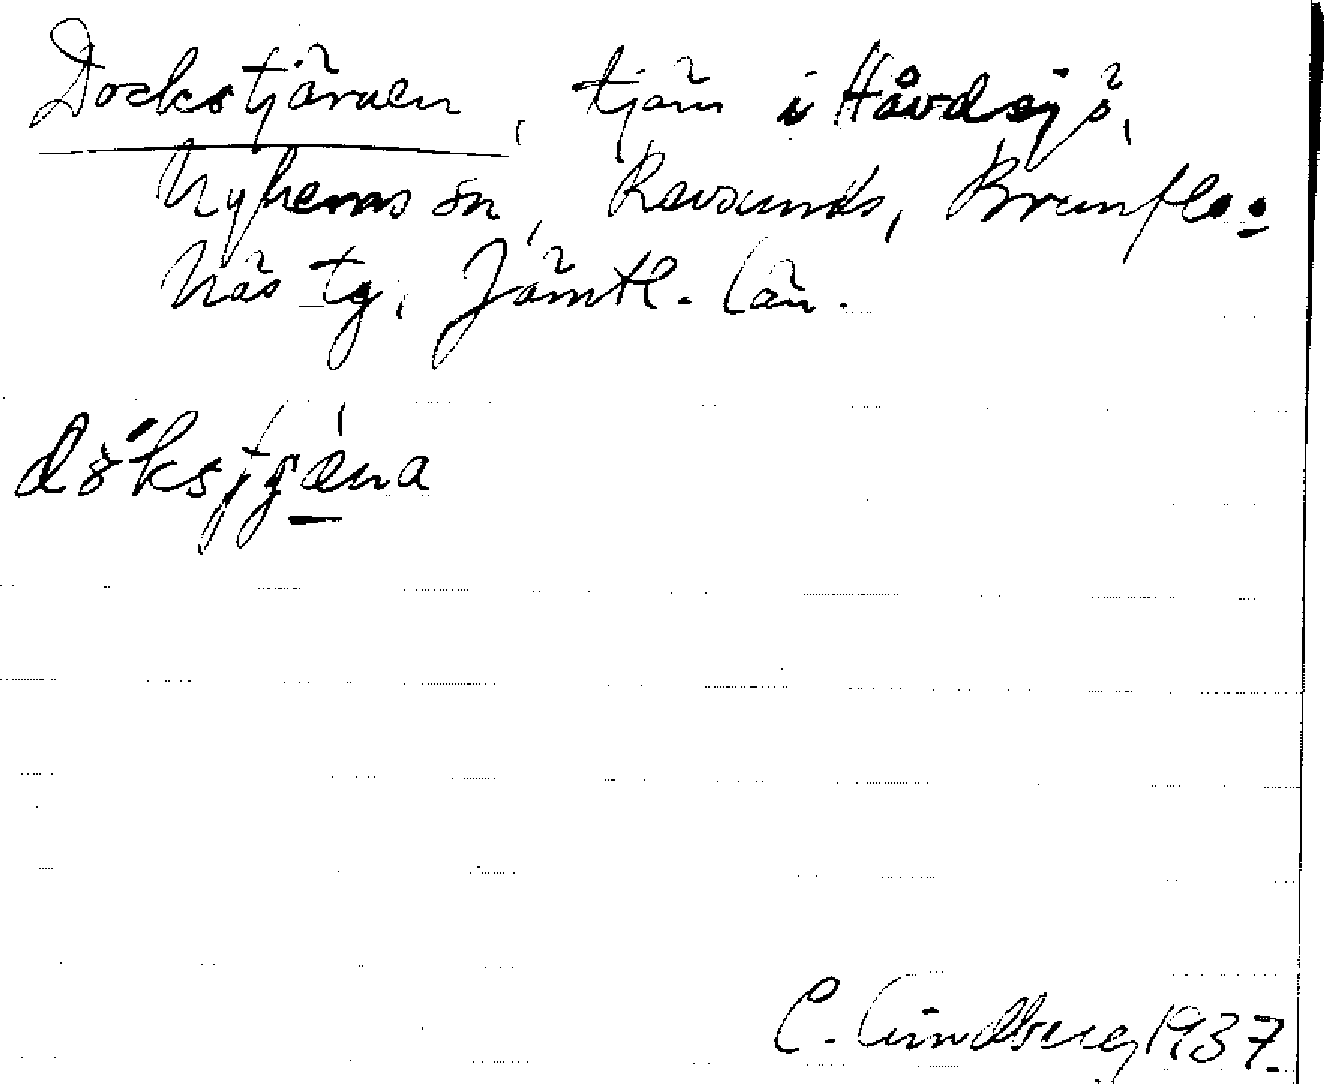 Dockstjärnen, tjärn i Håvdsjö,
Nyhems sn, Revsunds, Brunflo o
Näs tg, Jämtl. län.
C. Lindberg 1937.